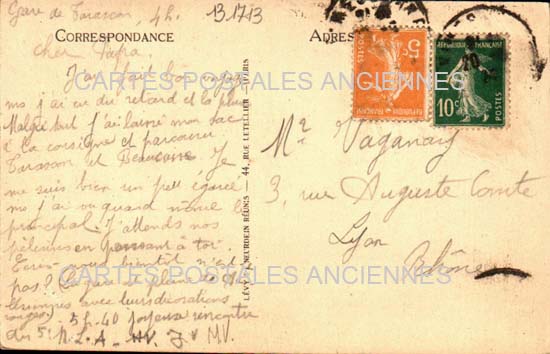 Gare de Tarascon, 4h. 13.17.13
CORRESPONDANCE
ADRES
cher Papa
J'ai fait bon voyage
ms j'ai eu du retard et la pluie
Malgré tout j'ai laissé mon sac
à la consigne et parcouru
Tarascon et Beaucaire. Je
me suis bien un peu égaré
ms j'ai vu quand même le
principal. J'attends nos
pèlerins en pensant à toi.
Écris-nous bientôt n'est
pas? La gare est pleine de
avec leurs décorations
rouges
5h-40 joyeuse rencontre
des 5
N.L.A - HV. J v MV.
LÉVY & NEURDEIN RÉUNIS — 44, RUE LETELLIER, PARIS
RÉPUBLIQUE FRANÇAISE
5c
POSTES
RÉPUBLIQUE FRANÇAISE
10c
POSTES
Mr Vaganay
3, rue Auguste Comte
Lyon
Rhône
CARTES POSTALES ANCIENNES
CARTES POSTALES ANCIENNES